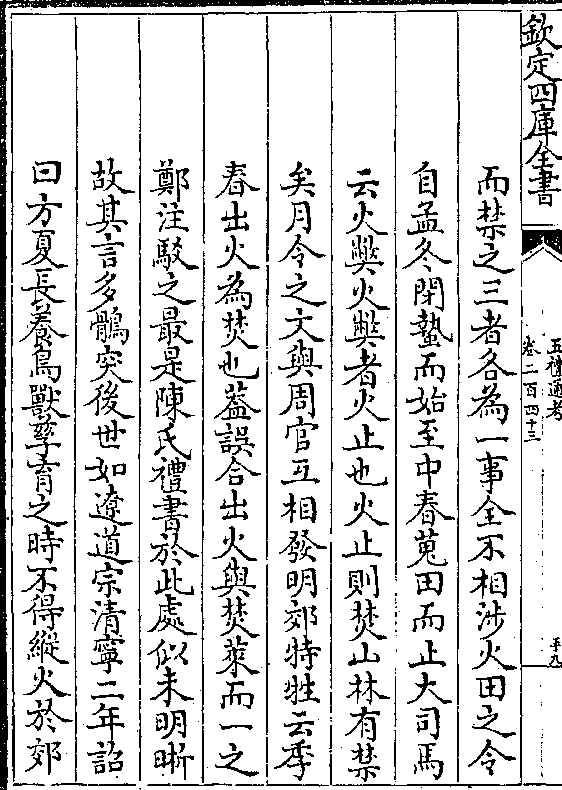 欽定四庫全書
五禮通考
卷二百四十三
而禁之三者各為一事全不相涉火田之令
自孟冬閉蟄而始至中春蒐田而止大司馬
云火弊火弊者火止也火止則焚山林有禁
矣月令之文與周官互相發明郊特牲云季
春出火為焚也葢誤合出火與焚萊而一之
鄭注駁之最是陳氏禮書於此處似未明晰
故其言多鶻突後世如遼道宗清寧二年詔
曰方夏長養鳥獸孳育之時不得縱火於郊